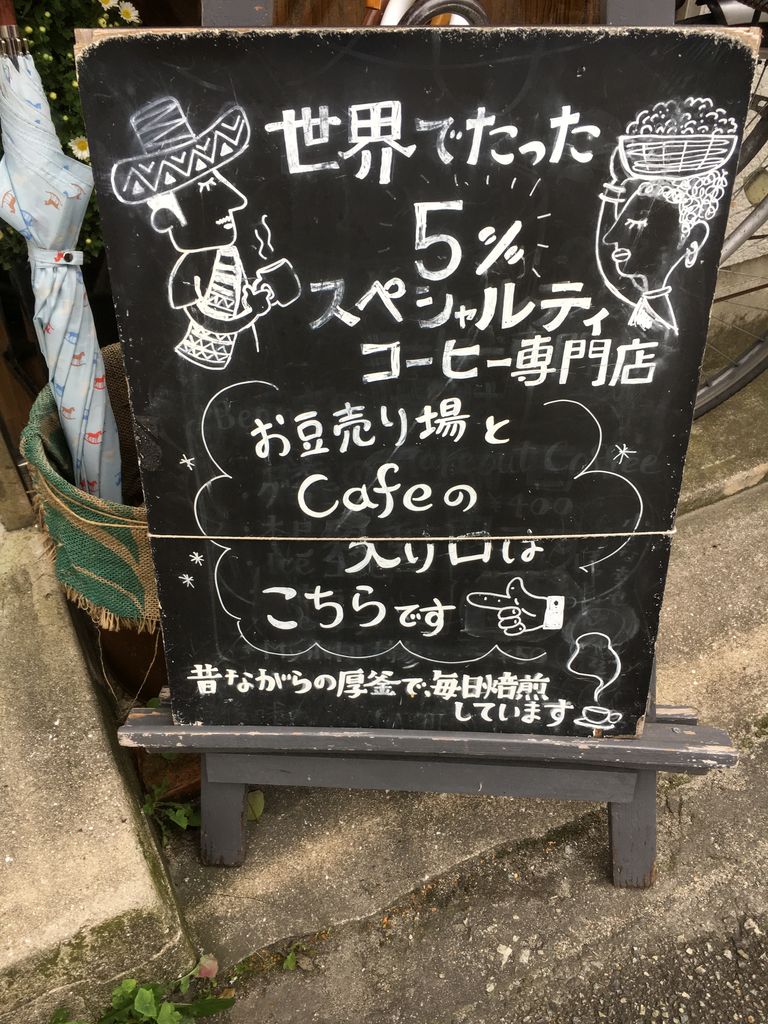 世界でたった
5%
スペシャルティ
コーヒー専門店
お豆売り場と
Cafeの
入り口は
こちらです
昔ながらの厚釜で、毎日焙煎
しています